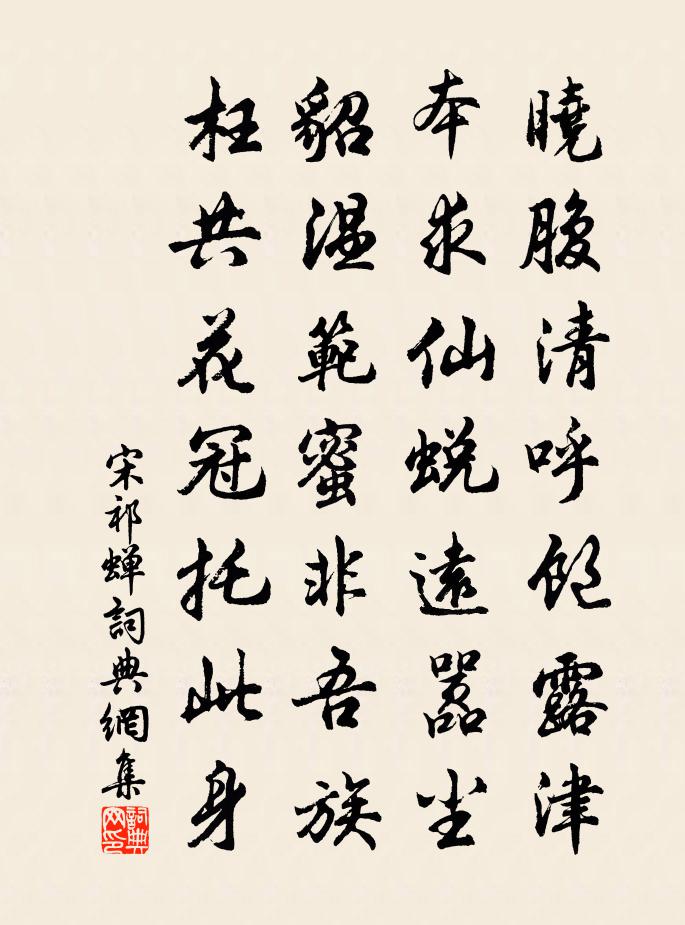 曉腹清呼飽露津
本求仙蛻遠囂尘
貂温範蜜非吾族
枉共花冠托此身
宋祁蟬詞典網集
詞典网印